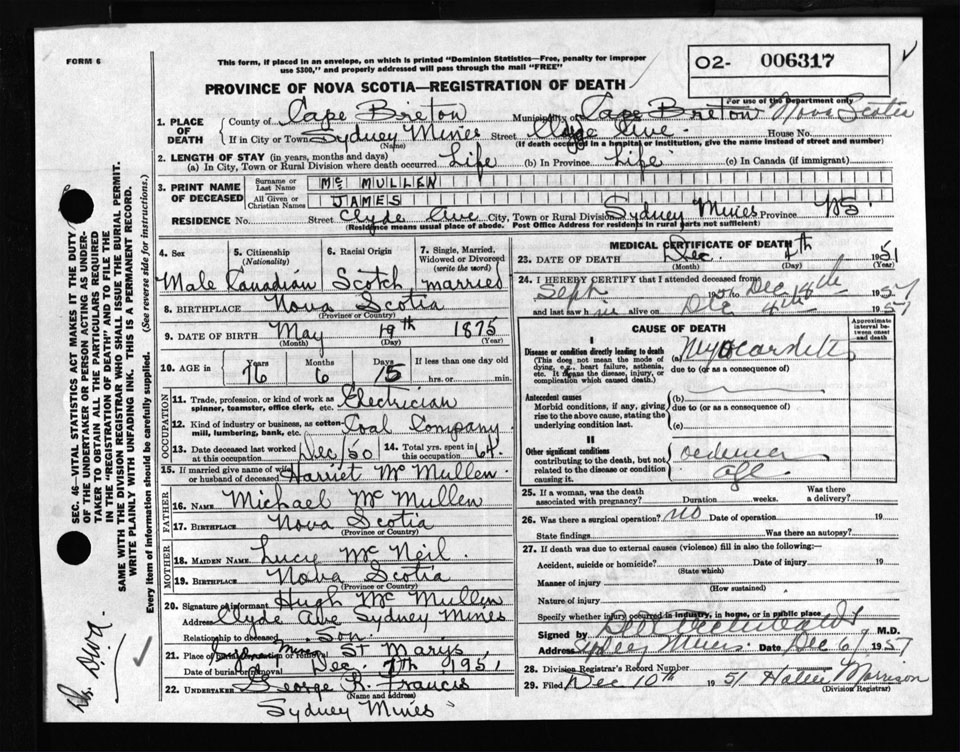 FORM 6
This form, if placed in an envelope, on which is printed "Dominion Statistics—Free, penalty for improper
use $300," and properly addressed will pass through the mail "FREE"
02- 006317
PROVINCE OF NOVA SCOTIA—REGISTRATION OF DEATH
For use of the Department only
1. PLACE OF DEATH
County of Cape Breton Municipality of Cape Breton Nova Scotia
If in City or Town Sydney Mines Street Clyde Ave. House No.
(Name) (If death occurred in a hospital or institution, give the name instead of street and number)
2. LENGTH OF STAY (in years, months and days)
(a) In City, Town or Rural Division where death occurred Life (b) In Province Life (c) In Canada (if immigrant)
3. PRINT NAME OF DECEASED
Surname or Last Name McMULLEN
All Given or Christian Names JAMES
RESIDENCE No. Street Clyde Ave City, Town or Rural Division Sydney Mines Province NS
(Residence means usual place of abode. Post Office Address for residents in rural parts not sufficient)
4. Sex Male
5. Citizenship (Nationality) Canadian
6. Racial Origin Scotch
7. Single, Married, Widowed or Divorced (write the word) married
8. BIRTHPLACE Nova Scotia
(Province or Country)
9. DATE OF BIRTH May 19th 1875
(Month) (Day) (Year)
10. AGE in Years 76 Months 6 Days 15 If less than one day old hrs. or min.
OCCUPATION
11. Trade, profession, or kind of work as spinner, teamster, office clerk, etc. Electrician
12. Kind of industry or business, as cotton-mill, lumbering, bank, etc. Coal Company
13. Date deceased last worked at this occupation Dec '50 14. Total yrs. spent in this occupation 64
15. If married give name of wife or husband of deceased Harriet McMullen
FATHER
16. NAME Michael McMullen
17. BIRTHPLACE Nova Scotia
MOTHER
18. MAIDEN NAME Lucy McNeil
19. BIRTHPLACE Nova Scotia
(Province or Country)
20. Signature of informant Hugh McMullen
Address Clyde Ave Sydney Mines
Relationship to deceased Son
21. Place of burial, cremation or removal St Marys
Date of burial or removal Dec. 7th 1951
22. UNDERTAKER George R. Francis
(Name and address)
Sydney Mines
MEDICAL CERTIFICATE OF DEATH
23. DATE OF DEATH Dec. 4th 1951
(Month) (Day) (Year)
24. I HEREBY CERTIFY that I attended deceased from
Sept 1951 to Dec 4th 1951
and last saw him alive on Dec 4th 1951
CAUSE OF DEATH
Approximate interval between onset and death
I
Disease or condition directly leading to death
(This does not mean the mode of dying, e.g., heart failure, asthenia, etc. It means the disease, injury, or complication which caused death.)
(a) Myocarditis
due to (or as a consequence of)
Antecedent causes
Morbid conditions, if any, giving rise to the above cause, stating the underlying condition last.
(b)
due to (or as a consequence of)
(c)
II
Other significant conditions
contributing to the death, but not related to the disease or condition causing it.
oedema
age
25. If a woman, was the death associated with pregnancy? Duration weeks. Was there a delivery?
26. Was there a surgical operation? no Date of operation 19
State findings Was there an autopsy?
27. If death was due to external causes (violence) fill in also the following:—
Accident, suicide or homicide? Date of injury 19
(State which)
Manner of injury
(How sustained)
Nature of injury
Specify whether injury occurred in industry, in home, or in public place
Signed by M.D.
Address Sydney Mines Date Dec 6/ 1951
28. Division Registrar's Record Number
29. Filed Dec 10th 1951 Morrison
(Division Registrar)
SEC. 46—VITAL STATISTICS ACT MAKES IT THE DUTY
OF THE UNDERTAKER OR PERSON ACTING AS UNDER-
TAKER TO OBTAIN ALL THE PARTICULARS REQUIRED
IN THE "REGISTRATION OF DEATH" AND TO FILE THE
SAME WITH THE DIVISION REGISTRAR WHO SHALL ISSUE THE BURIAL PERMIT.
WRITE PLAINLY WITH UNFADING INK. THIS IS A PERMANENT RECORD.
Every item of information should be carefully supplied. (See reverse side for instructions.)